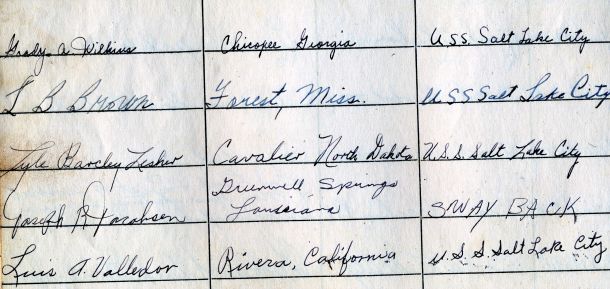 Grady A. Wilkins Chicopee Georgia U.S.S. Salt Lake City
L B Brown Forest, Miss. U S S Salt Lake City
Lyle Barclay Lesher Cavalier North Dakota U.S.S. Salt Lake City
Joseph R Jacobsen Greenwell Springs Louisiana SWAY BACK
Luis A. Valledor Rivera, California U.S.S. Salt Lake City